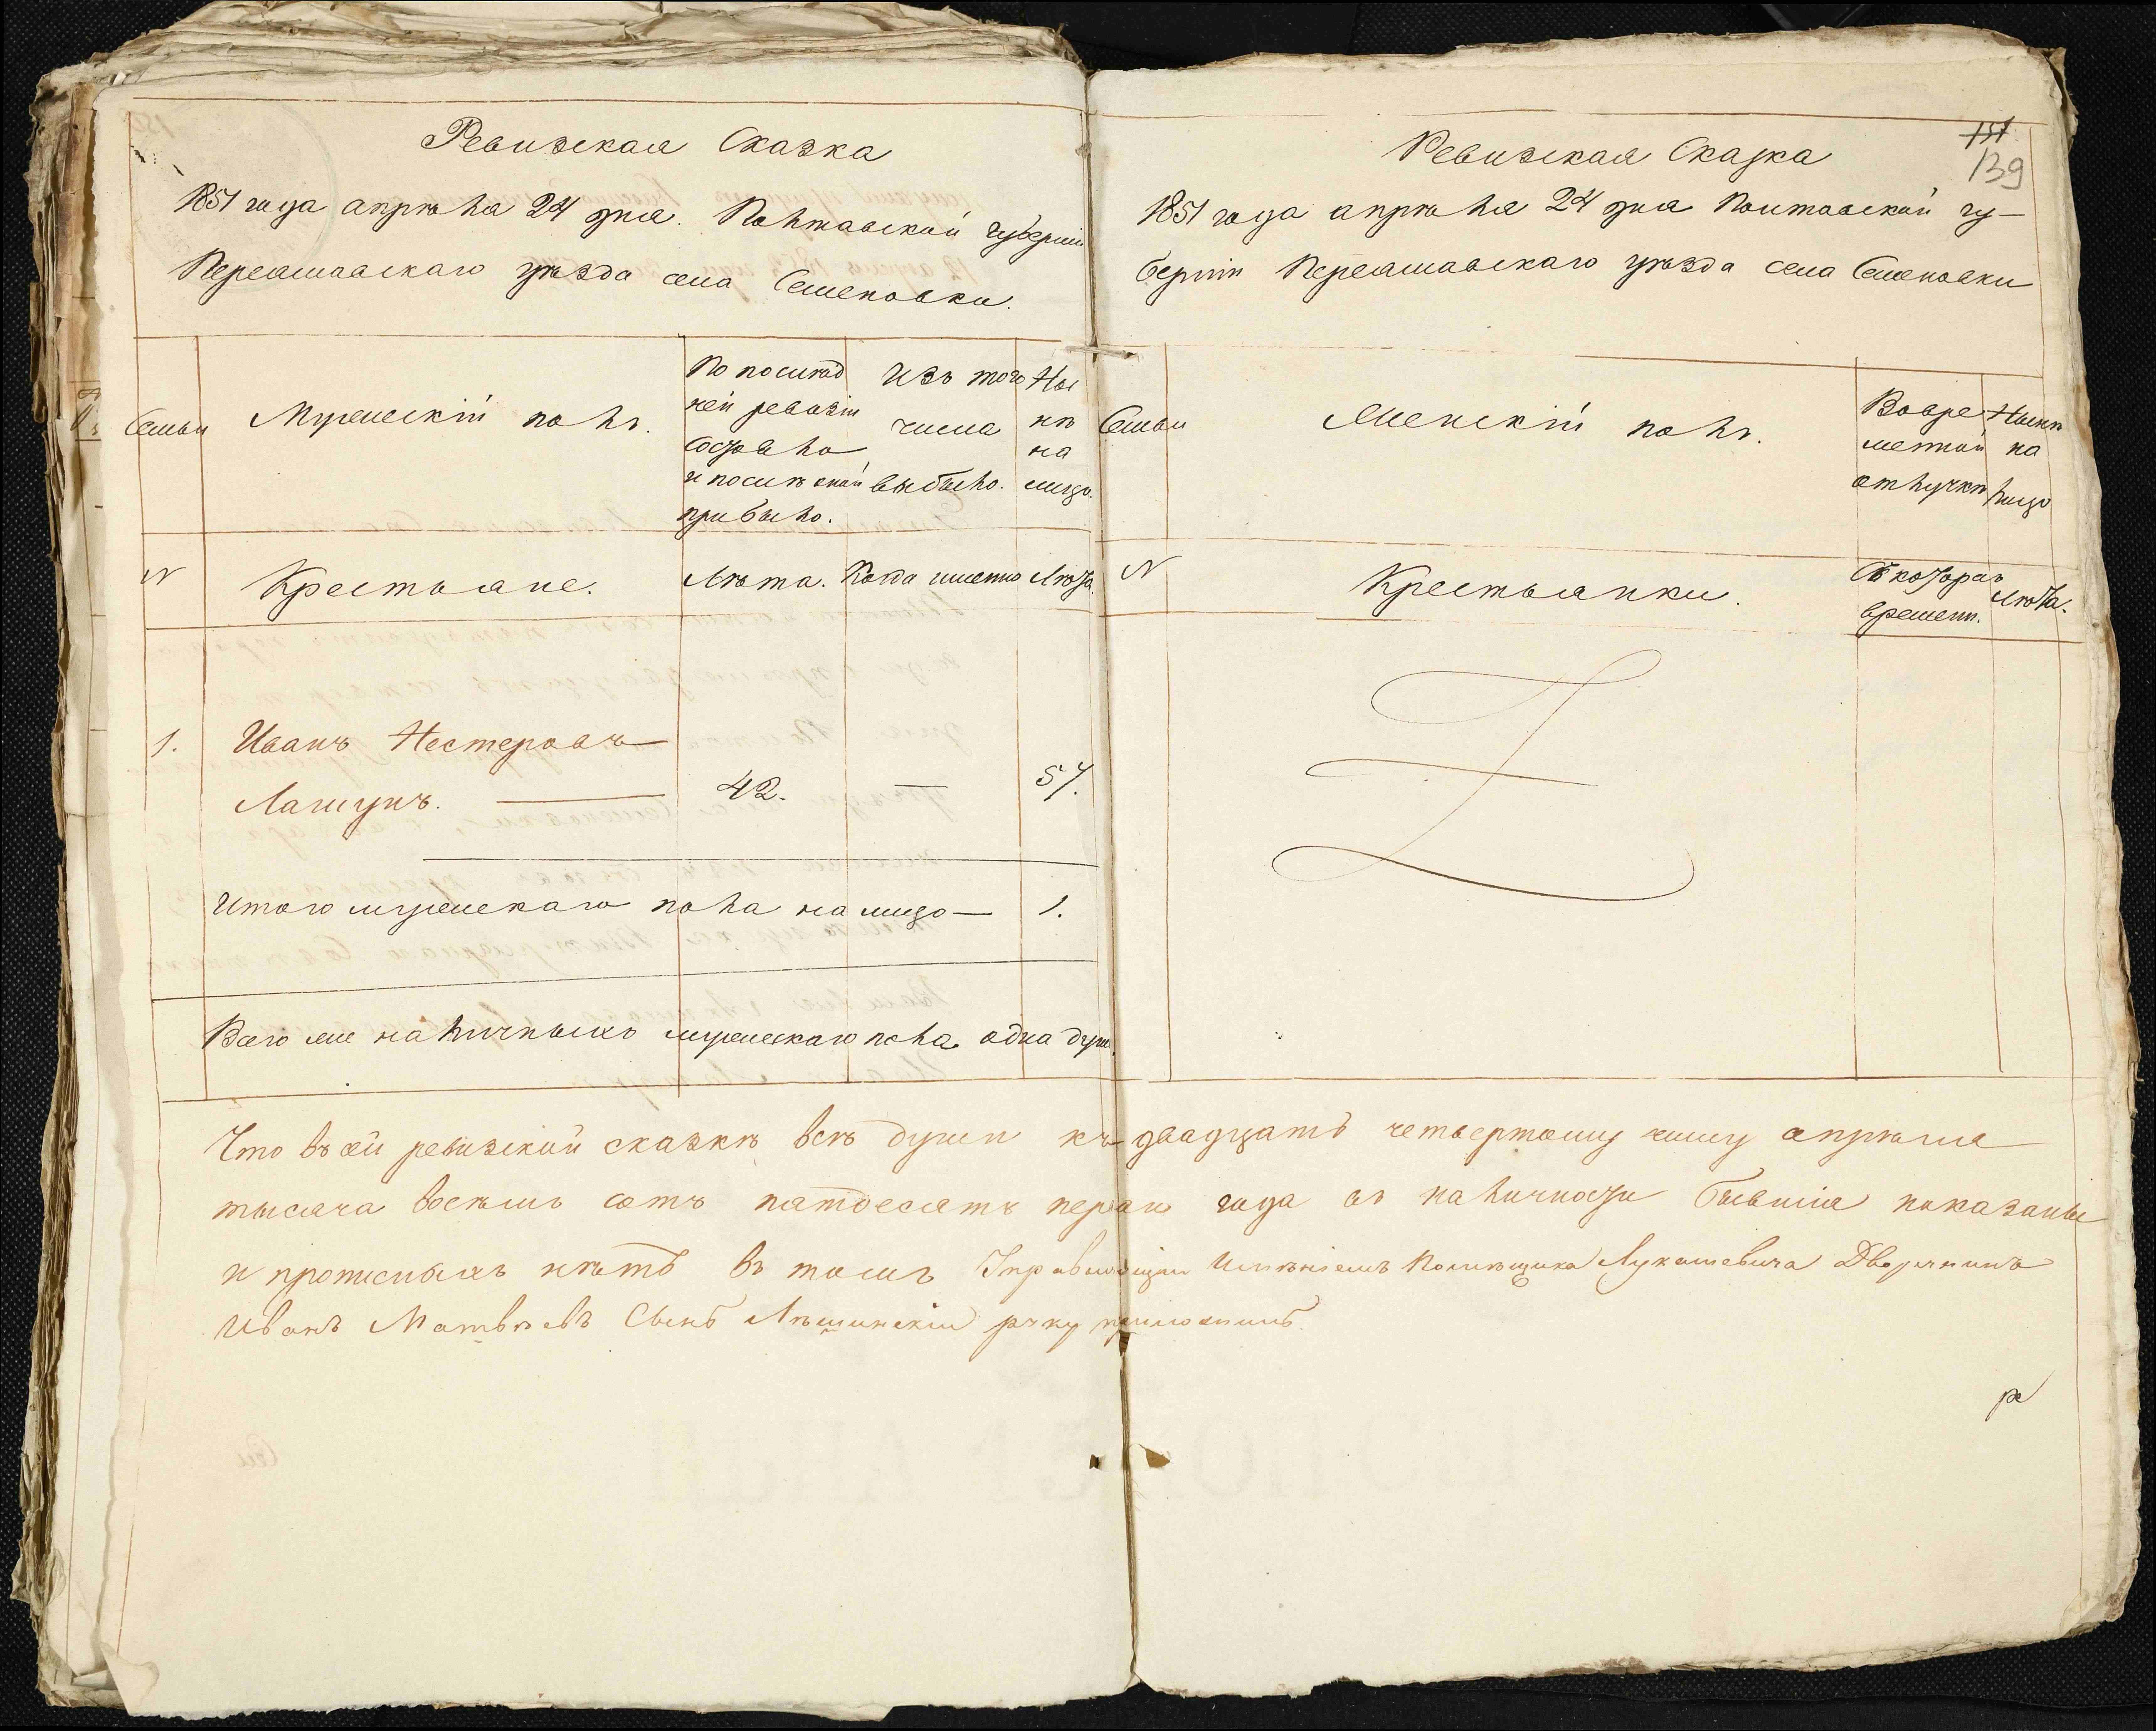 Ревизская Сказка
1851 года апрѣля 24 дня. Полтавской губерніи
Переяславскаго уѣзда села Семеновки.
Семьи
Мужескій полъ.
По послѣд
ней ревизіи
состояло
и послѣ оной
прибыло.
Изъ того
числа
выбыло.
Ны
нѣ
на
лицо.
N
Крестьяне.
Лѣта.
Когда именно
Лѣта.
1.
Иванъ Нестеровъ
Лагнунъ. —
42.
—
57.
Итого мужескаго пола на лицо —
1.
Всего же наличныхъ мужескаго пола одна душ.
151
139
Ревизская Сказка
1851 года апрѣля 24 дня Полтавской гу-
берніи Переяславскаго уѣзда села Семеновки
Семьи
Женскій полъ.
Во вре
менной
отлучкѣ
Нынѣ
на
лицо
N
Крестьянки.
Съ котораго
времени.
Лѣта.
Что въ сей ревизской сказкѣ всѣ души къ двадцать четвертому числу апрѣля
тысяча восемь сотъ пятдесятъ перваго года въ наличности бывшія показаны
и прописныхъ нѣтъ въ томъ Управляющій Имѣніемъ Помѣщика Лукашевича Дворянинъ
Иванъ Матвѣевъ Сынъ Лѣщинскій руку приложилъ